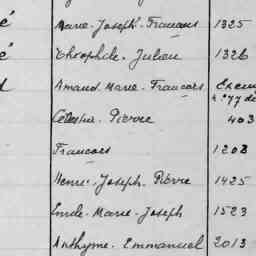 é Marie-Joseph-François 1325
é Théophile-Julien 1326
Amand-Marie-François Exem
n° 77 de
Célestin-Pierre 403
François 1208
Henri-Joseph-Pierre 1425
Emile-Marie-Joseph 1523
Anthyme-Emmanuel 2013